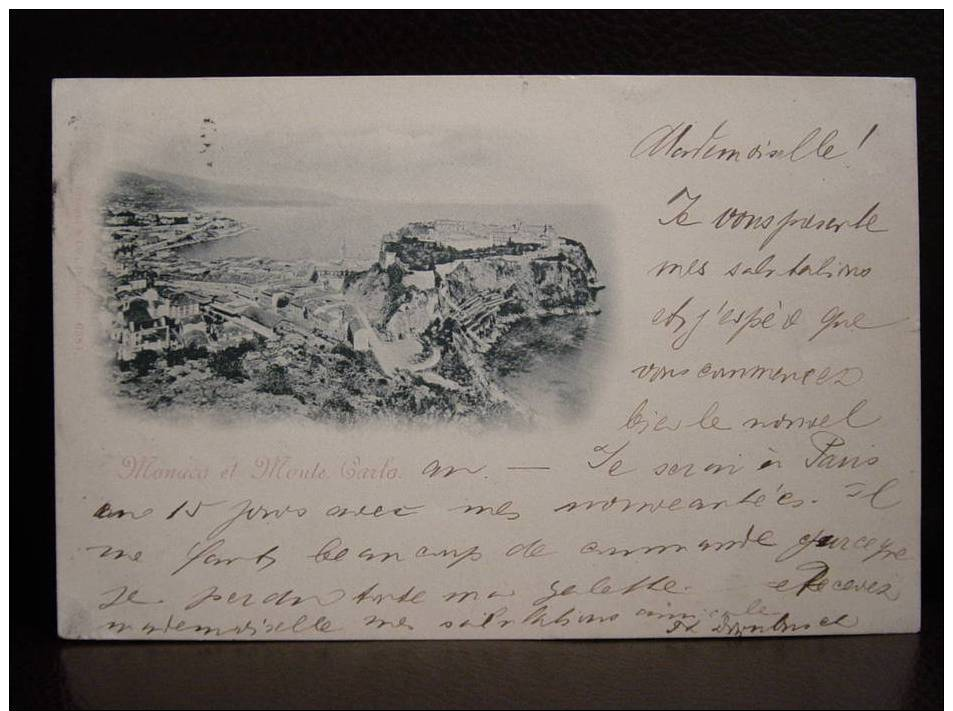 Mademoiselle!
Je vous presente
mes salutations
et j'espère que
vous commencez
bien le nouvel
Monaco et Monte Carlo.
an — Je serai à Paris
en 15 jours avec mes nouveautées. Il
me faut beaucoup de commande
je perdu toute ma galette. Recevez
mademoiselle mes salutations amicale